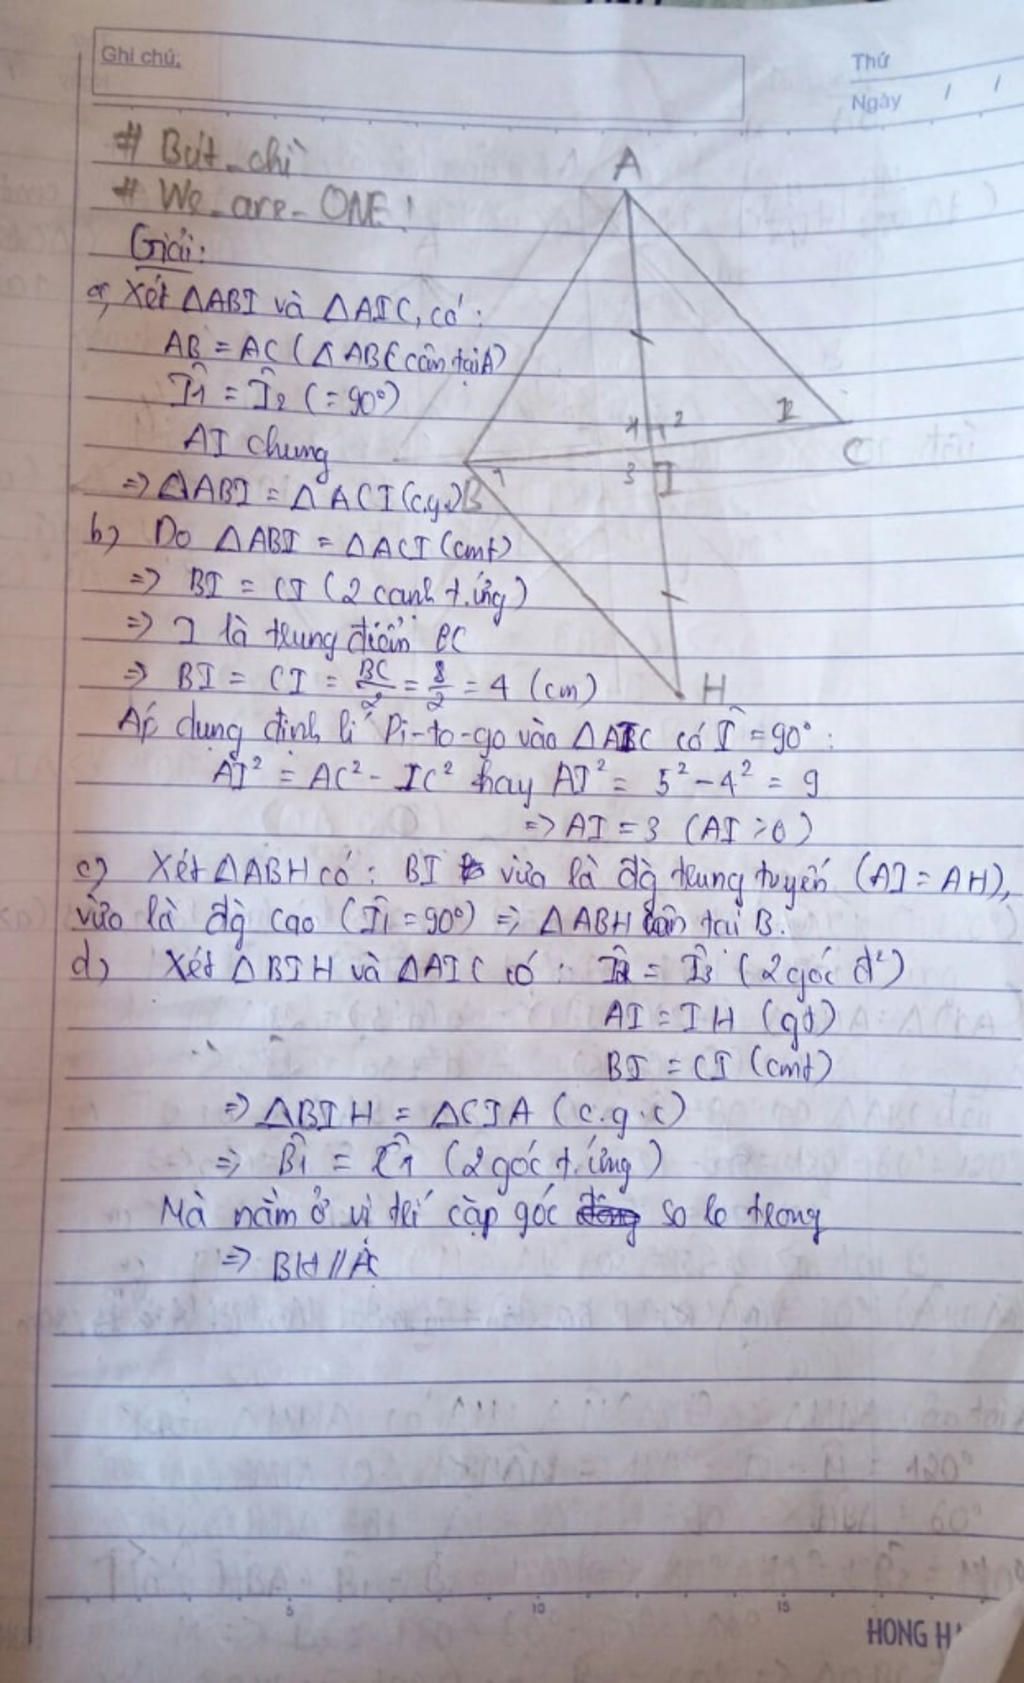 Ghi chú:
Thứ
Ngày / /
# Bút_chì
# We_are_ONE!
A
Giải:
a, Xét ΔABI và ΔAIC, có:
AB = AC (ΔABC cân tại A)
Î1 = Î2 (=90°)
AI chung
1 2
2
C
3 I
=> ΔABI = ΔACI (c.g.c)
B 1
b) Do ΔABI = ΔACI (cmt)
=> BI = CI (2 cạnh t.ứng)
=> I là trung điểm BC
=> BI = CI = BC/2 = 8/2 = 4 (cm)
H
Áp dụng định lí Pi-to-go vào ΔAIC có Î = 90°:
AI² = AC² - IC² hay AI² = 5² - 4² = 9
=> AI = 3 (AI > 0)
c) Xét ΔABH có: BI vừa là đg trung tuyến (AI = AH),
vừa là đg cao (Î1 = 90°) => ΔABH cân tại B.
d) Xét ΔBIH và ΔAIC có: Î2 = Î3 (2 góc đ²)
AI = IH (gt)
BI = CI (cmt)
=> ΔBIH = ΔCIA (c.g.c)
=> B̂1 = Ĉ1 (2 góc t.ứng)
Mà nằm ở vị trí cặp góc so le trong
=> BH // AC
5 10 15
HONG H